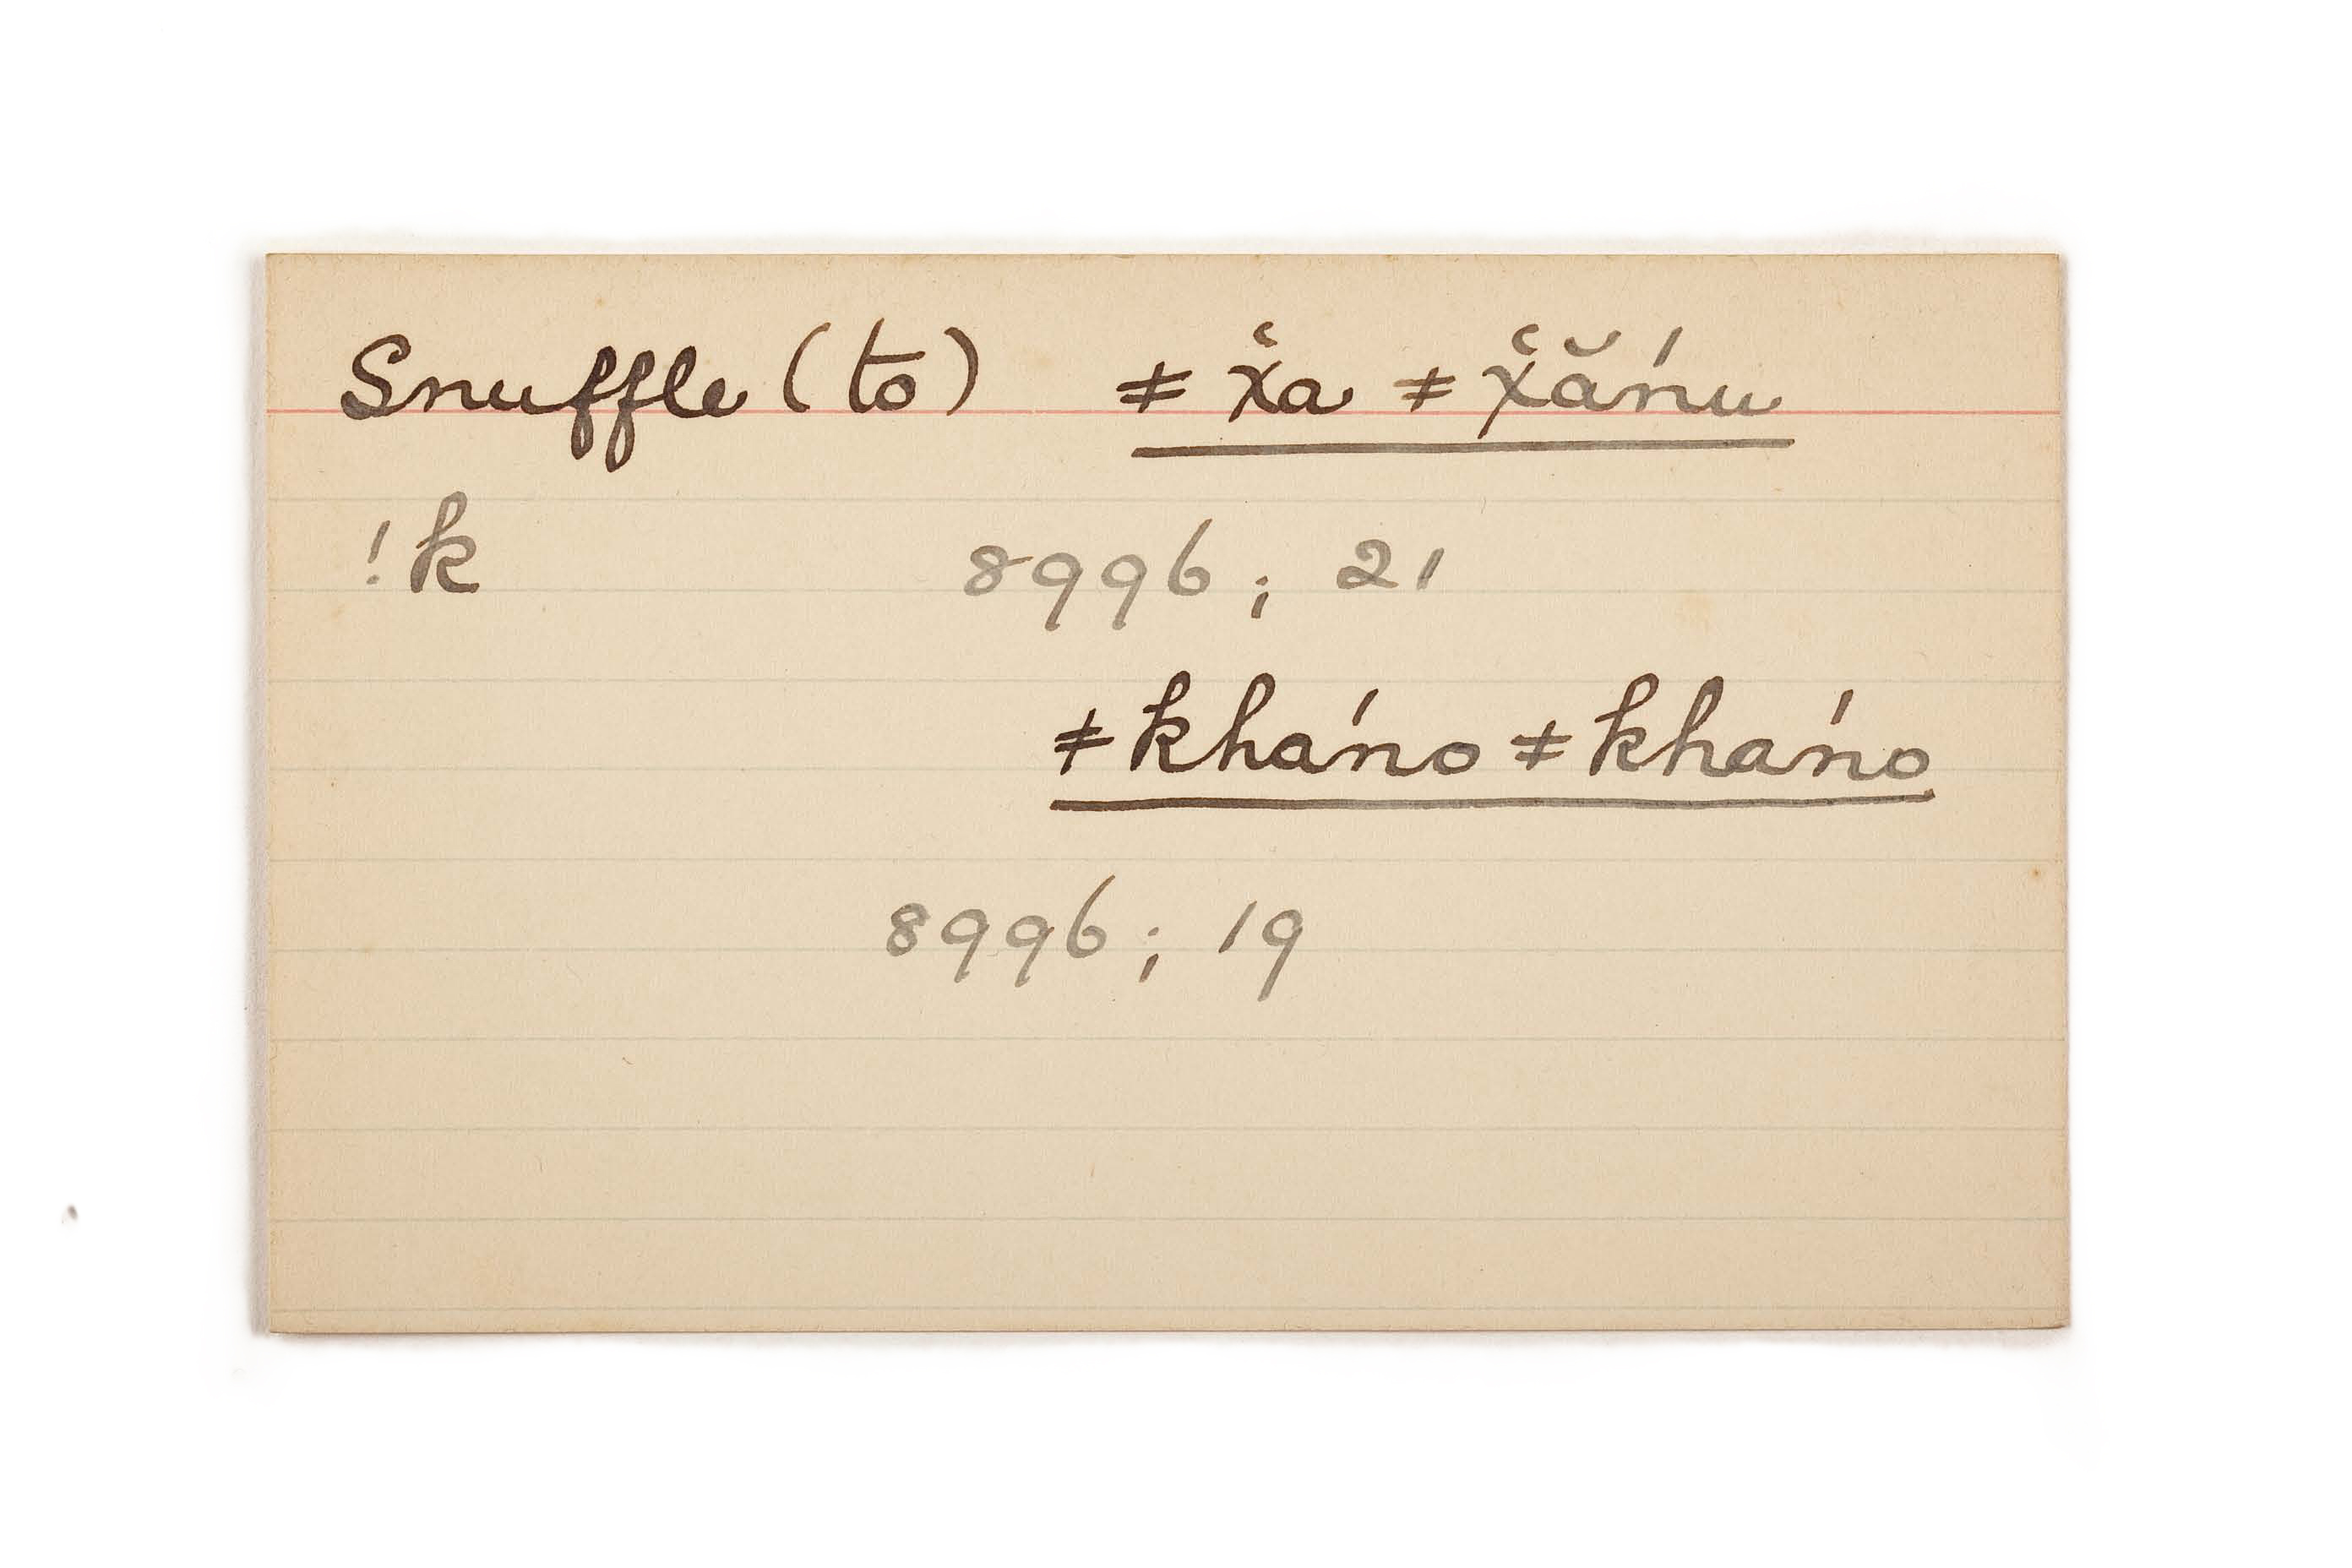 Snuffle (to) ǂx̔a ǂx̔ăńu
!k 8996; 21
ǂkháno ǂkháno
8996; 19